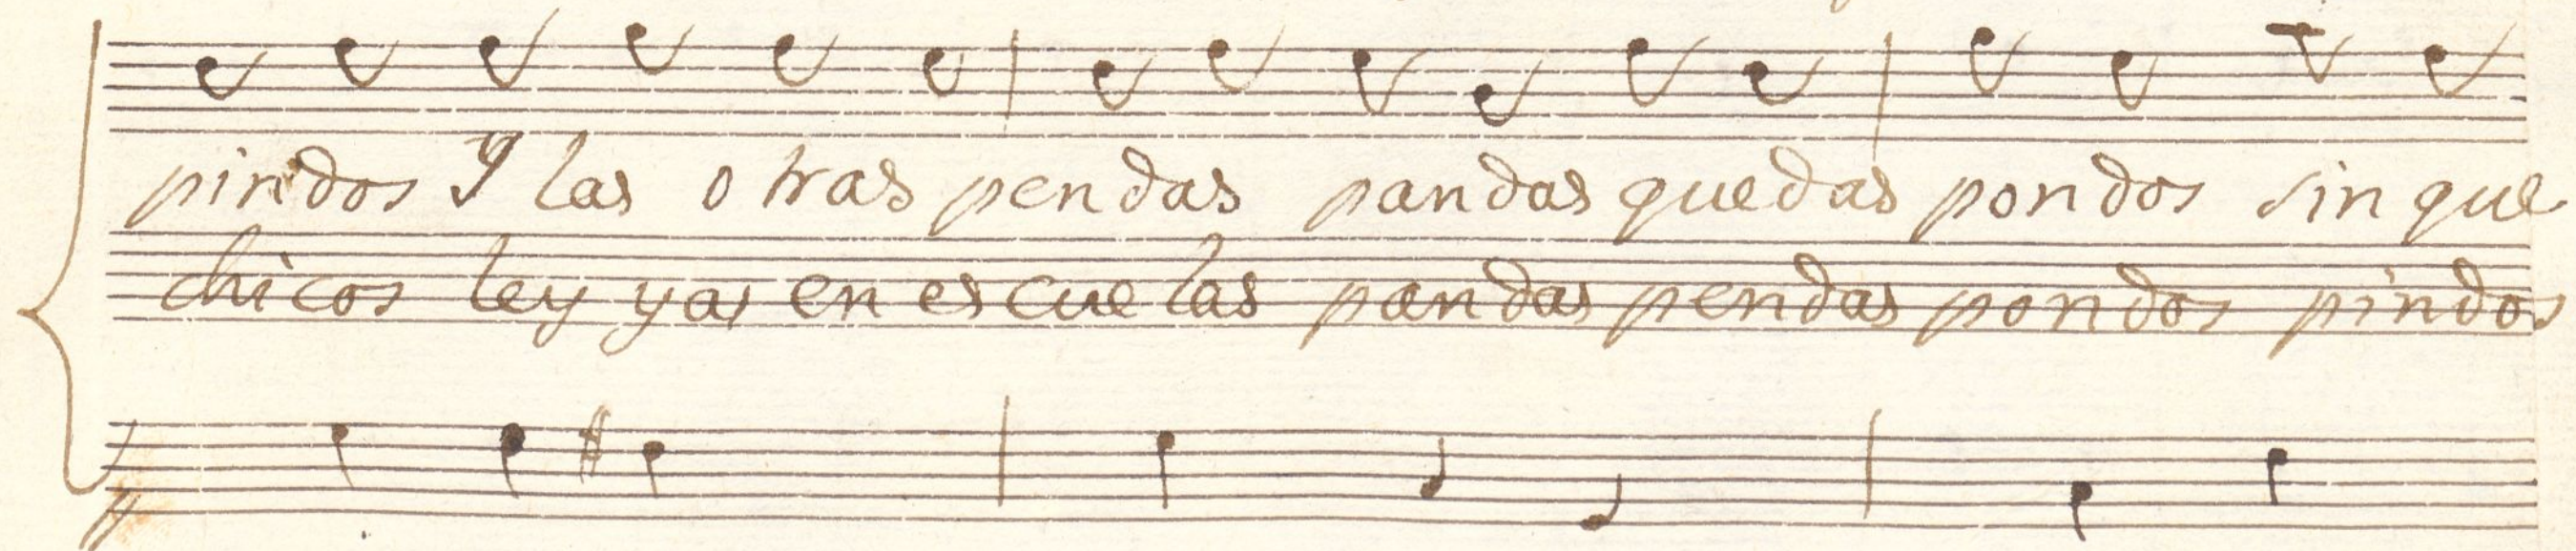 pindos Y las otras pendas pandas quedas pondos sin que
chicos ley yas en escuelas pandas pendas pondos pindos